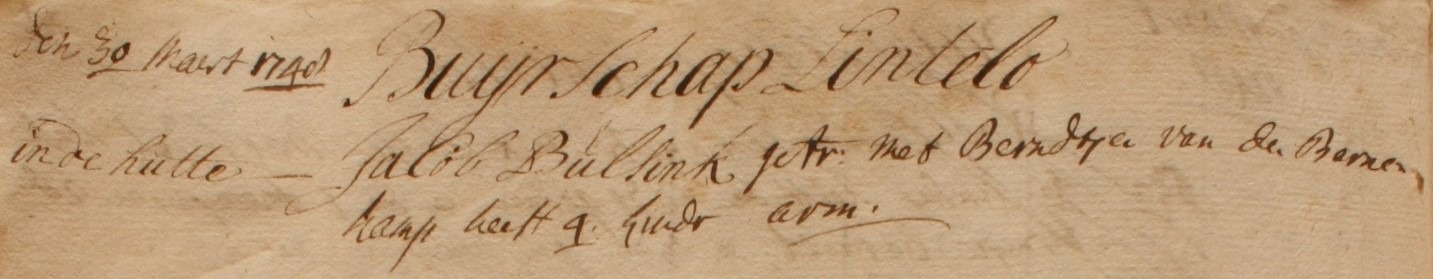 den 30 Maert 1748 Buijrschap Lintelo
in de hutte — Jacob Bulsink getr: met Berndtjen van den Barnen
kamp heeft 4. kindr arm.